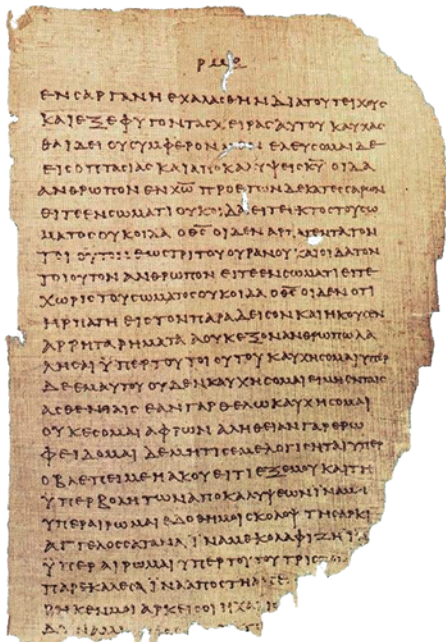 ΡΜΘ
ΕΝ ΣΑΡΓΑΝΗ ΕΧΑΛΑΣΘΗΝ ΔΙΑ ΤΟΥ ΤΕΙΧΟΥΣ
ΚΑΙ ΕΞΕΦΥΓΟΝ ΤΑΣ ΧΕΙΡΑΣ ΑΥΤΟΥ ΚΑΥΧΑΣ
ΘΑΙ ΔΕΙ ΟΥ ΣΥΜΦΕΡΟΝ ΕΛΕΥΣΟΜΑΙ ΔΕ
ΕΙΣ ΟΠΤΑΣΙΑΣ ΚΑΙ ΑΠΟΚΑΛΥΨΕΙΣ ΚΥ ΟΙΔΑ
ΑΝΘΡΩΠΟΝ ΕΝ ΧΩ ΠΡΟ ΕΤΩΝ ΔΕΚΑΤΕΣΣΑΡΩΝ
ΕΙΤΕ ΕΝ ΣΩΜΑΤΙ ΟΥΚ ΟΙΔΑ ΕΙΤΕ ΕΚΤΟΣ ΤΟΥ ΣΩ
ΜΑΤΟΣ ΟΥΚ ΟΙΔΑ Ο ΘΣ ΟΙΔΕΝ ΑΡΠΑΓΕΝΤΑ ΤΟΝ
ΤΟΙΟΥΤΟΝ ΕΩΣ ΤΡΙΤΟΥ ΟΥΡΑΝΟΥ ΚΑΙ ΟΙΔΑ ΤΟΝ
ΤΟΙΟΥΤΟΝ ΑΝΘΡΩΠΟΝ ΕΙΤΕ ΕΝ ΣΩΜΑΤΙ ΕΙΤΕ
ΧΩΡΙΣ ΤΟΥ ΣΩΜΑΤΟΣ ΟΥΚ ΟΙΔΑ Ο ΘΣ ΟΙΔΕΝ ΟΤΙ
ΗΡΠΑΓΗ ΕΙΣ ΤΟΝ ΠΑΡΑΔΕΙΣΟΝ ΚΑΙ ΗΚΟΥΣΕΝ
ΑΡΡΗΤΑ ΡΗΜΑΤΑ Α ΟΥΚ ΕΞΟΝ ΑΝΘΡΩΠΩ ΛΑ
ΛΗΣΑΙ ΫΠΕΡ ΤΟΥ ΤΟΙΟΥΤΟΥ ΚΑΥΧΗΣΟΜΑΙ ΥΠΕΡ
ΔΕ ΕΜΑΥΤΟΥ ΟΥΔΕΝ ΚΑΥΧΗΣΟΜΑΙ ΕΙ ΜΗ ΕΝ ΤΑΙΣ
ΑΣΘΕΝΕΙΑΙΣ ΕΑΝ ΓΑΡ ΘΕΛΩ ΚΑΥΧΗΣΟΜΑΙ
ΟΥΚ ΕΣΟΜΑΙ ΑΦΡΩΝ ΑΛΗΘΕΙΑΝ ΓΑΡ ΕΡΩ
ΦΕΙΔΟΜΑΙ ΔΕ ΜΗ ΤΙΣ ΕΜΕ ΛΟΓΙΣΗΤΑΙ ΥΠΕΡ
Ο ΒΛΕΠΕΙ ΜΕ Η ΑΚΟΥΕΙ ΤΙ ΕΞ ΕΜΟΥ ΚΑΙ ΤΗ
ΫΠΕΡΒΟΛΗ ΤΩΝ ΑΠΟΚΑΛΥΨΕΩΝ ΪΝΑ ΜΗ
ΥΠΕΡΑΙΡΩΜΑΙ ΕΔΟΘΗ ΜΟΙ ΣΚΟΛΟΨ ΤΗ ΣΑΡΚΙ
ΑΓΓΕΛΟΣ ΣΑΤΑΝΑ ΪΝΑ ΜΕ ΚΟΛΑΦΙΖΗ ΪΝΑ
ΫΠΕΡΑΙΡΩΜΑΙ ΥΠΕΡ ΤΟΥΤΟΥ ΤΡΙΣ
ΠΑΡΕΚΑΛΕΣΑ ΪΝΑ ΑΠΟΣΤΗ
ΚΕΝ ΜΟΙ ΑΡΚΕΙ ΣΟΙ Η ΧΑΡΙΣ